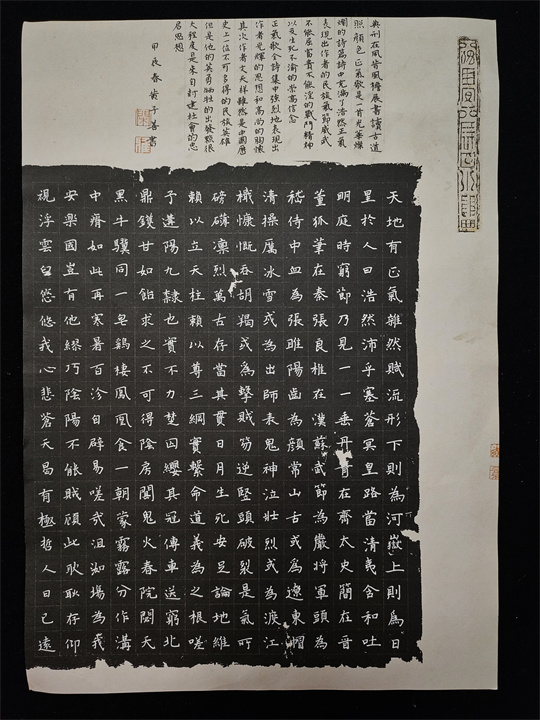 天地有正氣雜然賦流形下則為河嶽上則為日
星於人曰浩然沛乎塞蒼冥皇路當清夷含和吐
明庭時窮節乃見一一垂丹青在齊太史簡在晉
董狐筆在秦張良椎在漢蘇武節為嚴將軍頭為
嵇侍中血為張睢陽齒為顏常山舌或為遼東帽
清操厲冰雪或為出師表鬼神泣壯烈或為渡江
檝慷慨吞胡羯或為擊賊笏逆豎頭破裂是氣所
磅礴凜烈萬古存當其貫日月生死安足論地維
賴以立天柱賴以尊三綱實繫命道義為之根嗟
予遘陽九隸也實不力楚囚纓其冠傳車送窮北
鼎鑊甘如飴求之不可得陰房闃鬼火春院閟天
黑牛驥同一皂鷄棲鳳凰食一朝蒙霧露分作溝
中瘠如此再寒暑百沴自辟易嗟哉沮洳場為我
安樂國豈有他繆巧陰陽不能賊顧此耿耿存仰
視浮雲白悠悠我心悲蒼天曷有極哲人日已遠
典刑在夙昔風檐展書讀古道
照顏色正氣歌是一首光華燦
爛的詩篇詩中充滿了浩然正氣
表現出作者的民族氣節威武
不能屈富貴不能淫的戰鬥精神
以及生死不渝的崇高信念
正氣歌全詩集中強烈地表現出
作者光輝的思想和高尚的胸懷
其次作者文天祥雖然是中國歷
史上一位不可多得的民族英雄
但是他的英勇犧牲的出發點很
大程度是來自封建社會的忠
君思想
甲辰春 子善書